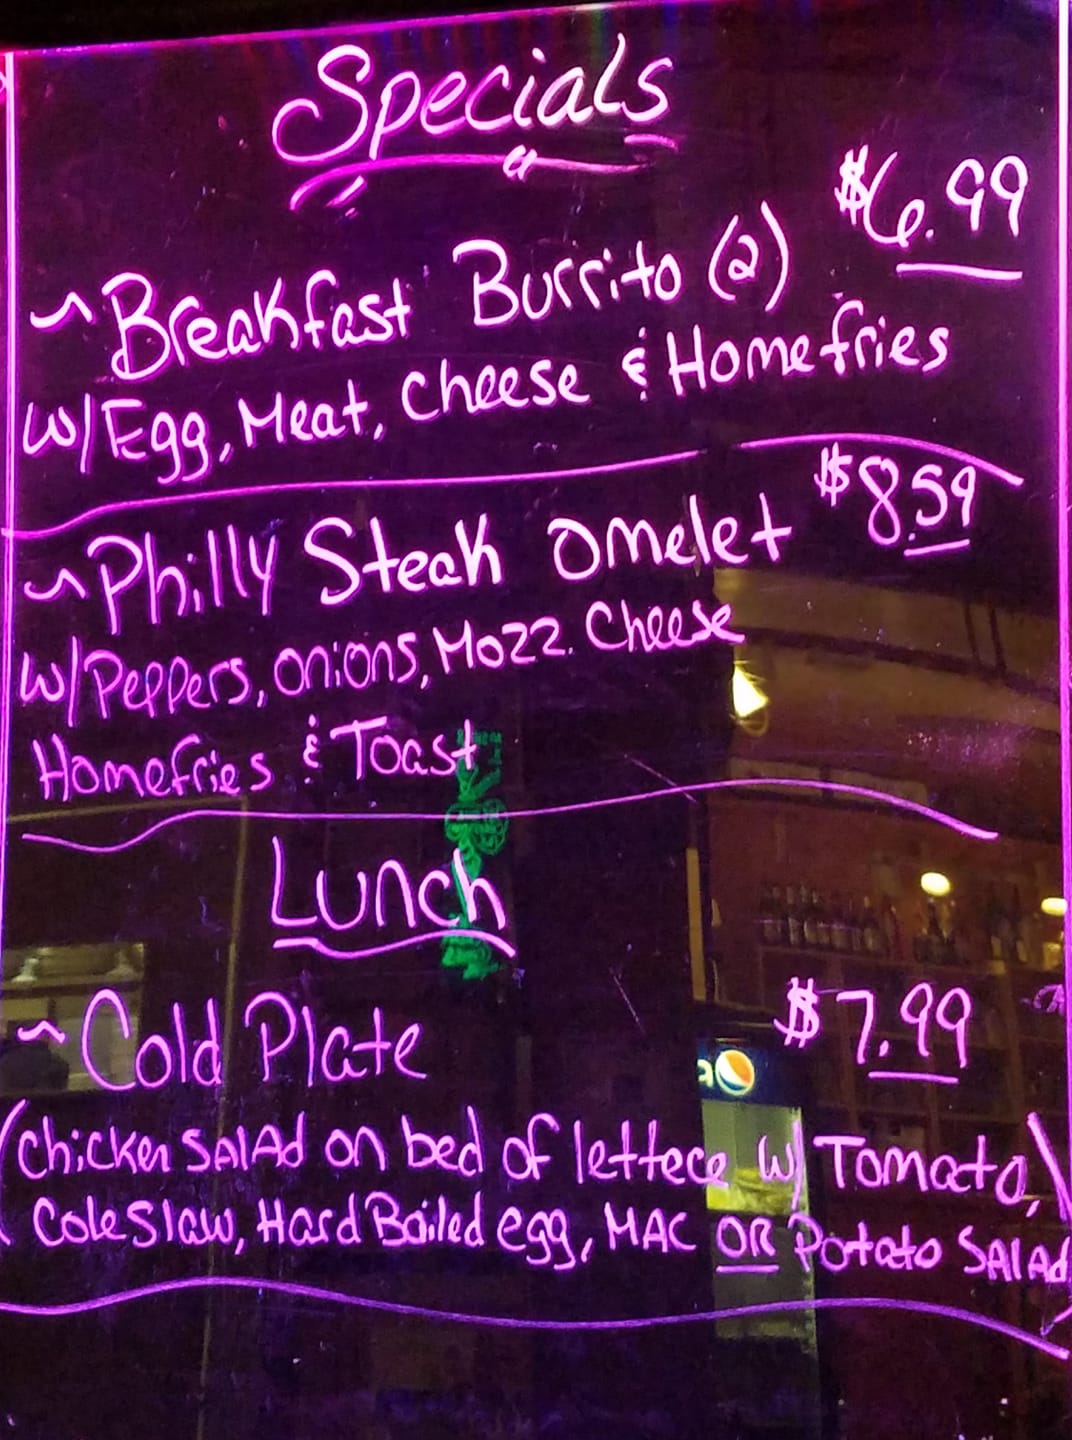 Specials
$6.99
~Breakfast Burrito (2)
w/Egg, Meat, Cheese & Homefries
$8.59
~Philly Steak Omelet
w/Peppers, Onions, Mozz. Cheese
Homefries & Toast
Lunch
~Cold Plate $7.99
(Chicken Salad on bed of lettece w/ Tomato,
Coleslaw, Hard Boiled egg, MAC OR Potato SALAd)